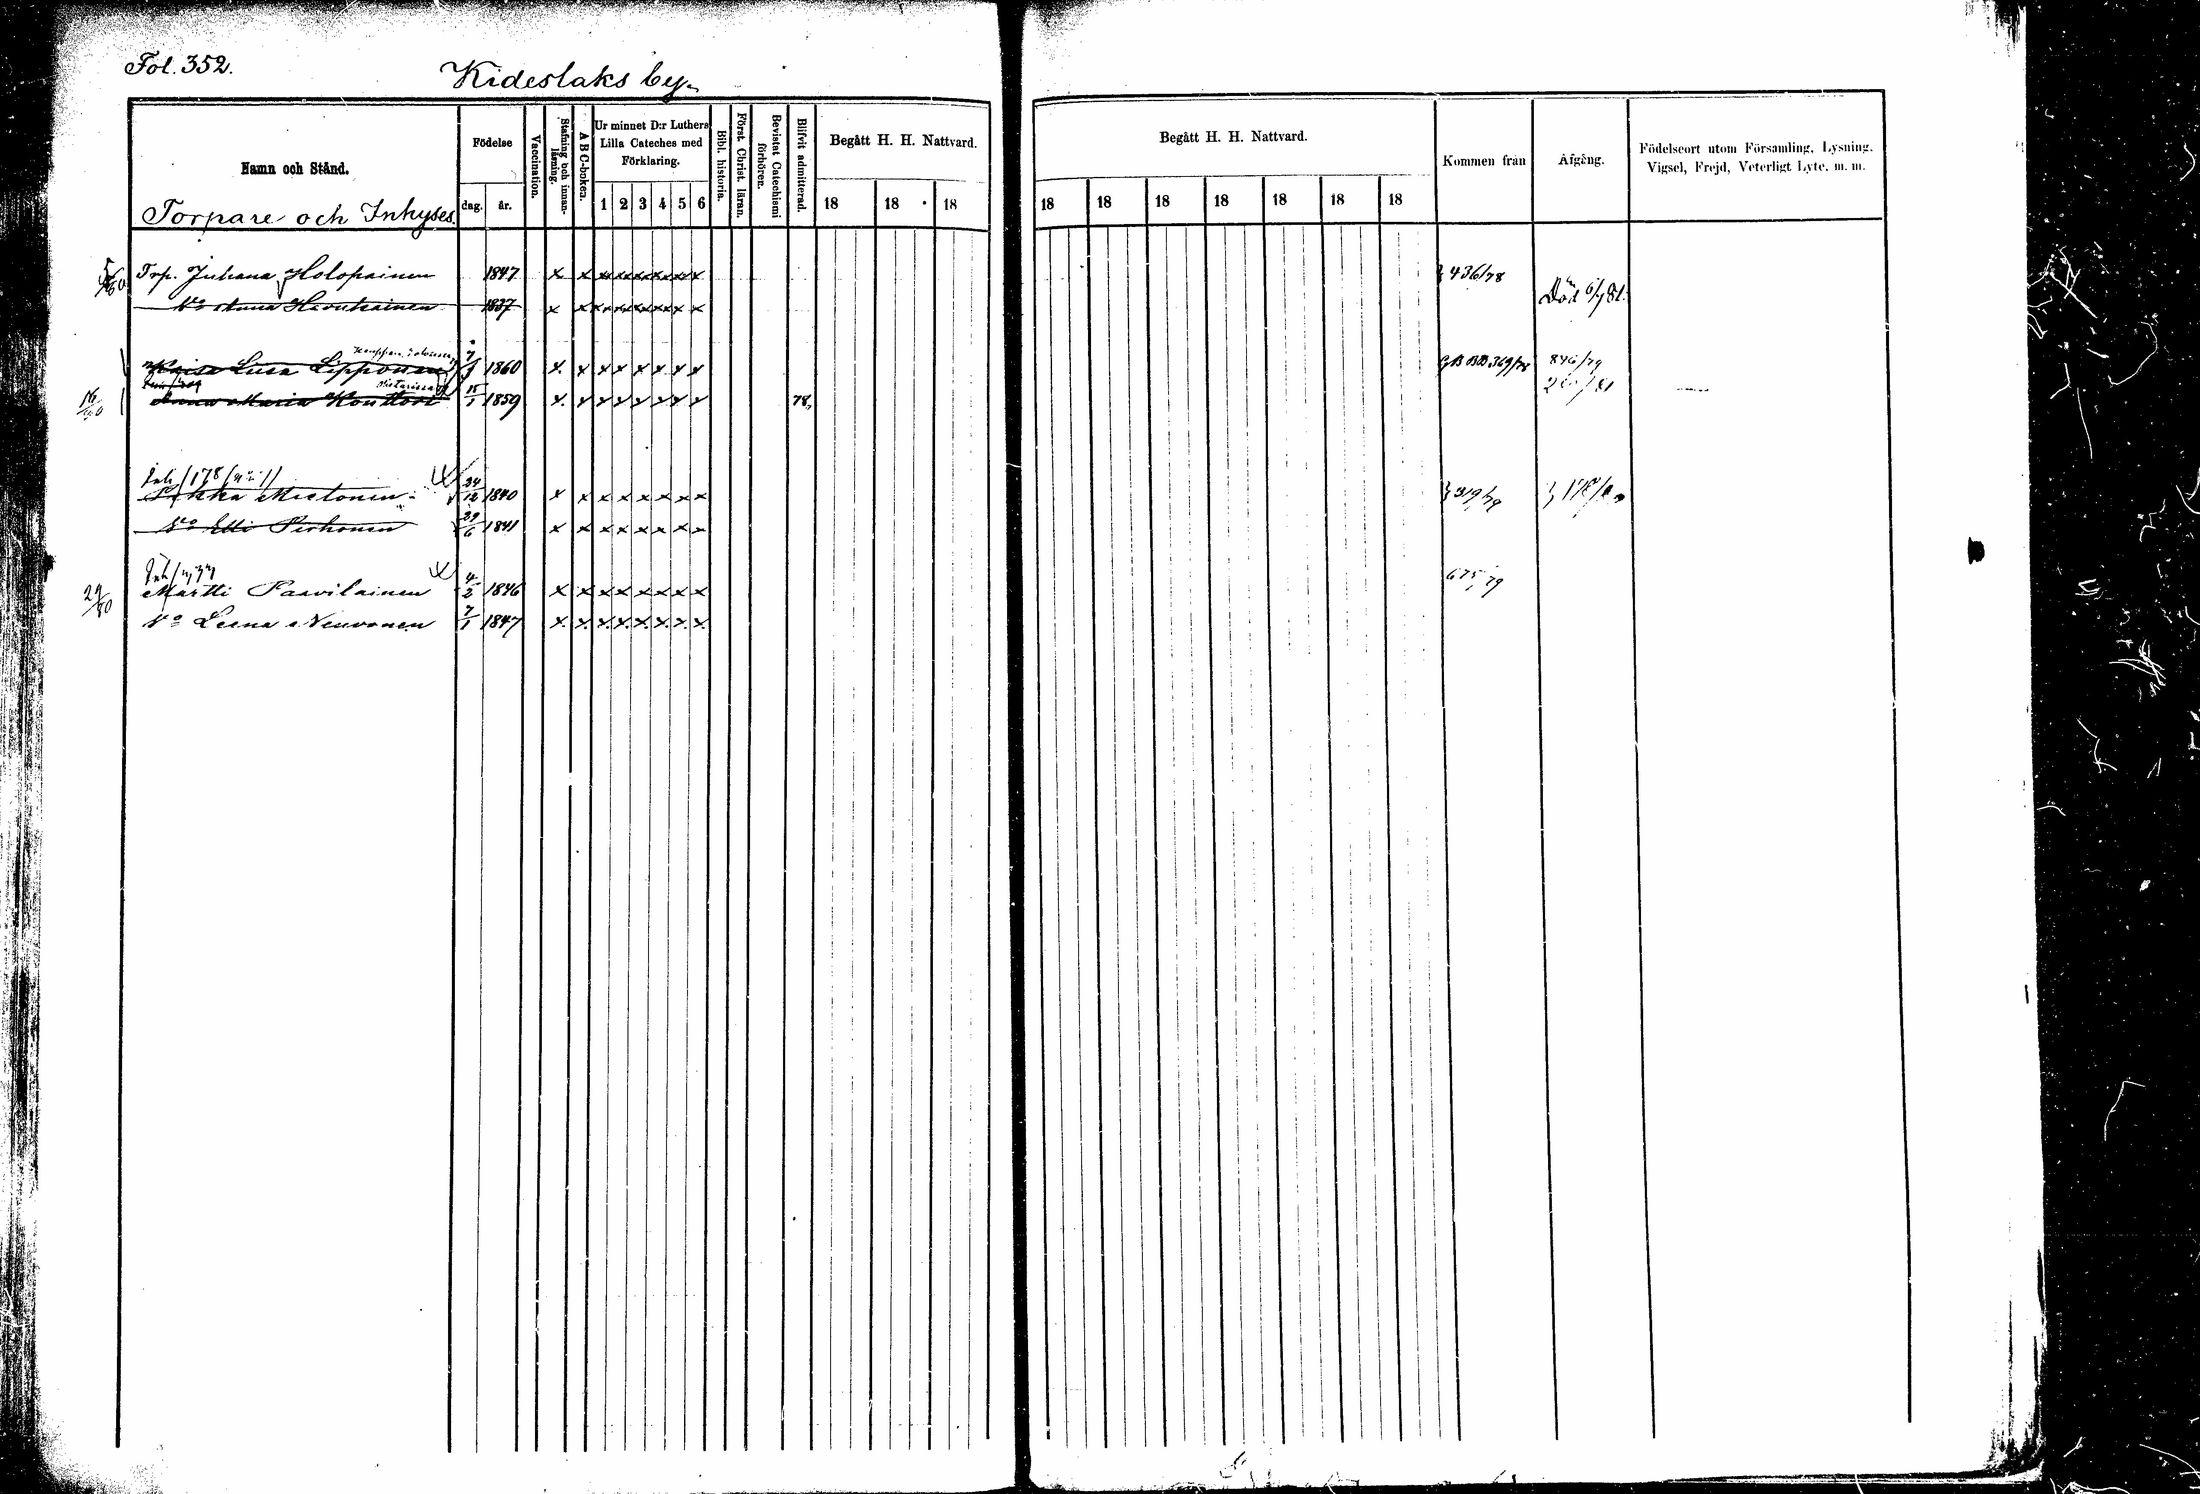 Fol. 352.
Kideslaks by
Namn och Stånd.
Torpare och Inhyses.
Födelse
dag. år.
Vaccination.
Stafning och innanläsning.
A B C-boken.
Ur minnet D:r Luthers
Lilla Cateches med
Förklaring.
1 2 3 4 5 6
Bibl. historia.
Först. Christ. läran.
Bevistat Catechismi förhören.
Blifvit admitterad.
Begått H. H. Nattvard.
18 18 18
Begått H. H. Nattvard.
18 18 18 18 18 18 18
Kommen från
Afgång.
Födelseort utom Församling, Lysning,
Vigsel, Frejd, Veterligt Lyte, m. m.
Trp. Juhana Holopainen 1847 x x x x x x x x 436/78
Anna 1837 x x x x x x x x Död 81.
Kaisa Liisa Lipponen 7 1860 x x x x x x x x 369/78 846/79
Anna Maria 15/1 1859 x x x x x x x x 78,
Pekka 24/12 1840 x x x x x x x x 319/79
Etti Pirhonen 29/6 1841 x x x x x x x x
29/80 Martti Paavilainen 4/2 1846 x x x x x x x x 675/79
Leena Neuvonen 7/1 1847 x x x x x x x x